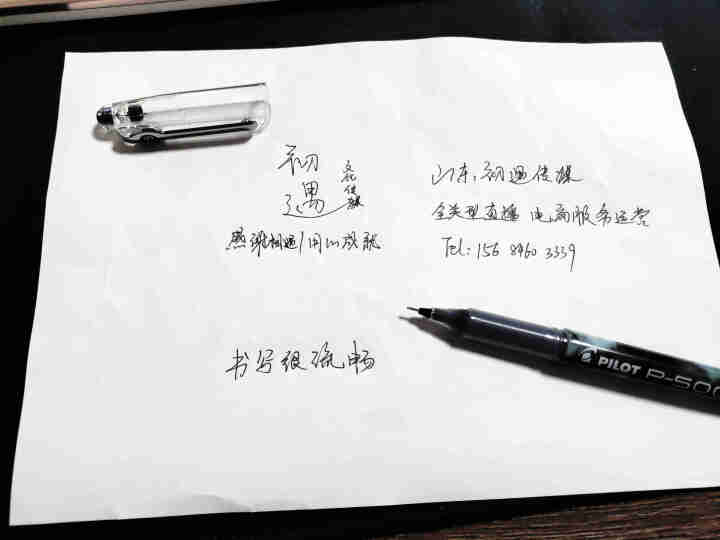 初遇
文化传媒
感谢相遇/用心成就
山东·初遇传媒
全类型直播 电商服务运营
Tel: 156 8960 3339
书写很流畅
PILOT P-500